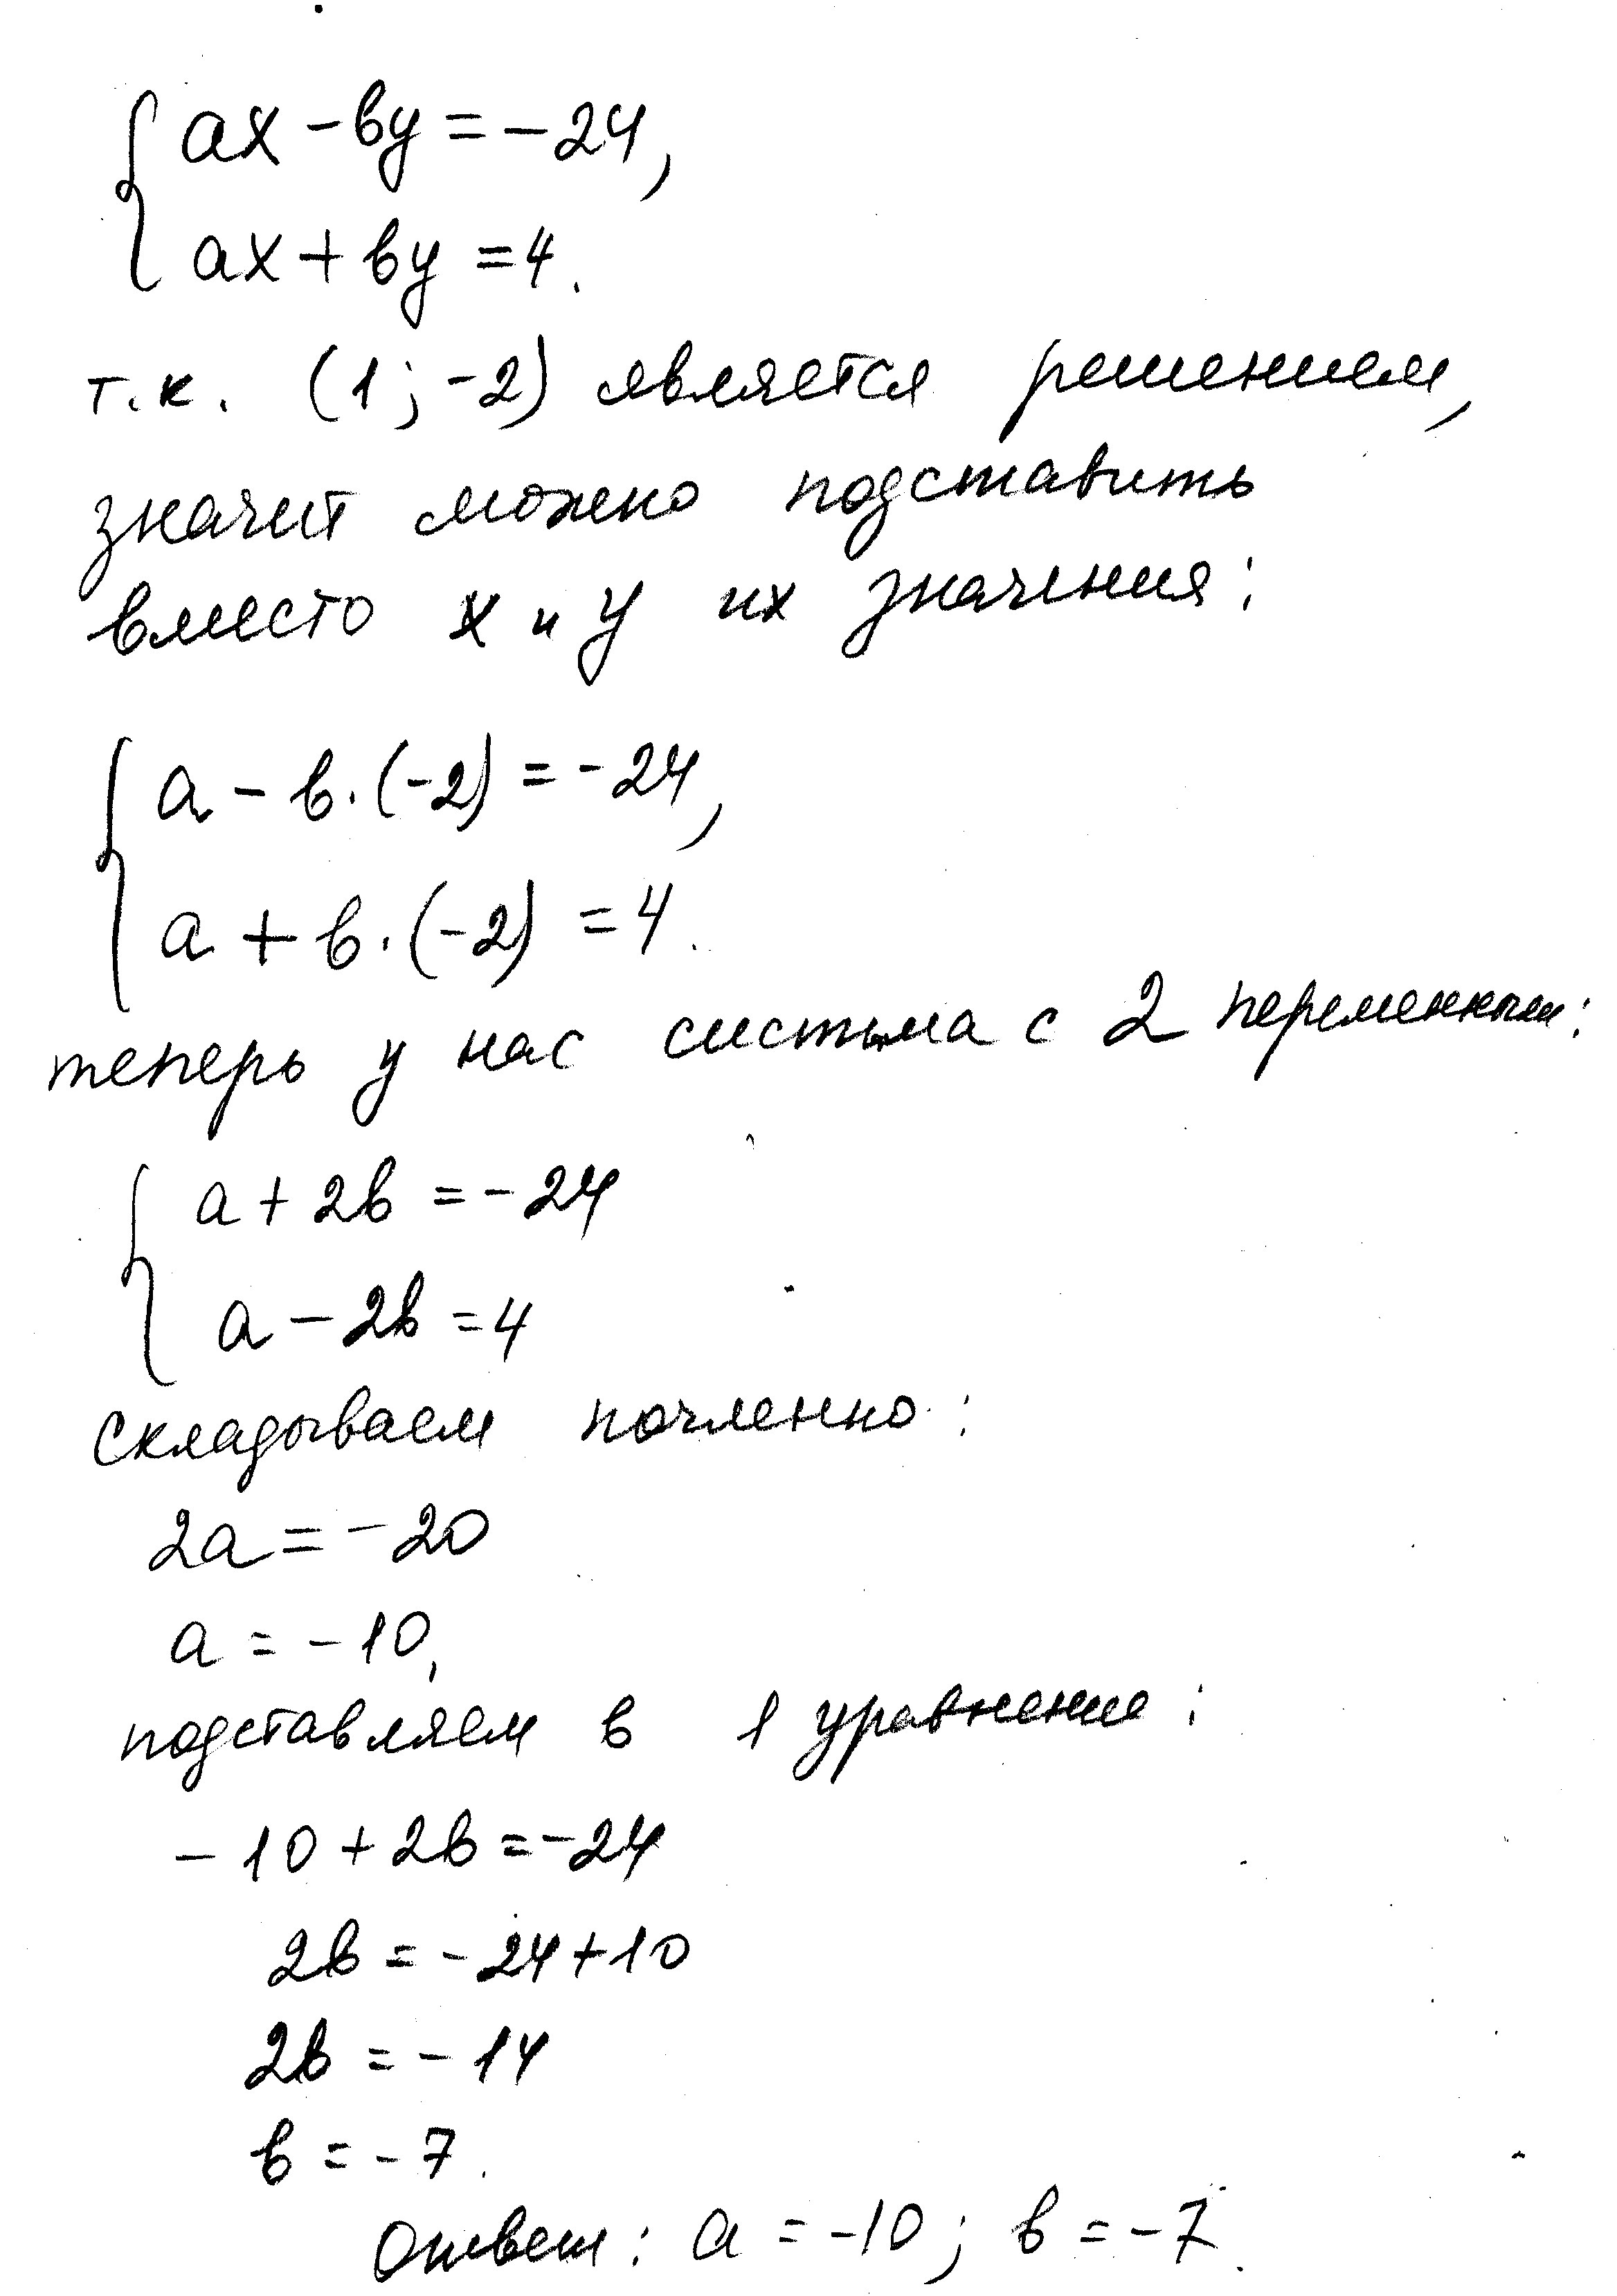 ах - ву = - 24,
ах + ву = 4.
т.к. (1; -2) является решением,
значит можно подставить
вместо х и у их значения:
а - в·(-2) = - 24,
а + в·(-2) = 4.
теперь у нас система с 2 переменным:
а + 2в = - 24
а - 2в = 4
складываем почленно:
2а = - 20
а = - 10,
подставляем в 1 уравнение:
- 10 + 2в = - 24
2в = - 24 + 10
2в = - 14
в = - 7.
Ответ: а = -10; в = -7.